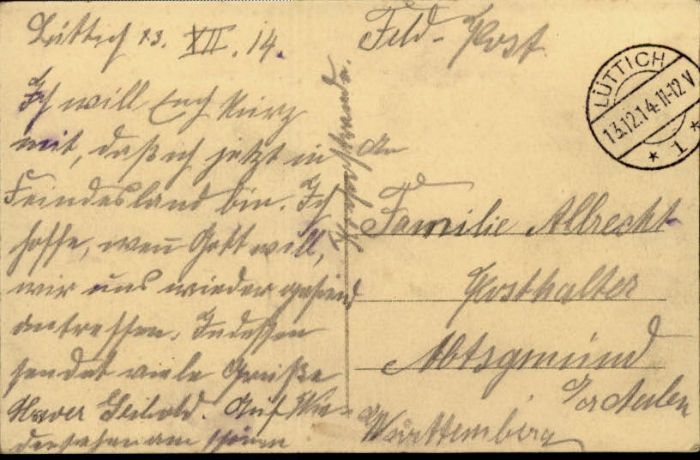 Lüttich 13. XII. 14.
Ich will Euch kurz
mit, daß ich jetzt in
Feindesland bin. Ich
hoffe, wenn Gott will,
wir uns wieder gesund
antreffen. Indessen
sendet viele Grüße
Xaver Seibold. Auf Wie-
dersehen am schönen
Feld-Post
LÜTTICH
13.12.14.11-12 V
* 1 *
An
Familie Albrecht
Posthalter
Abtsgmünd
Württemberg